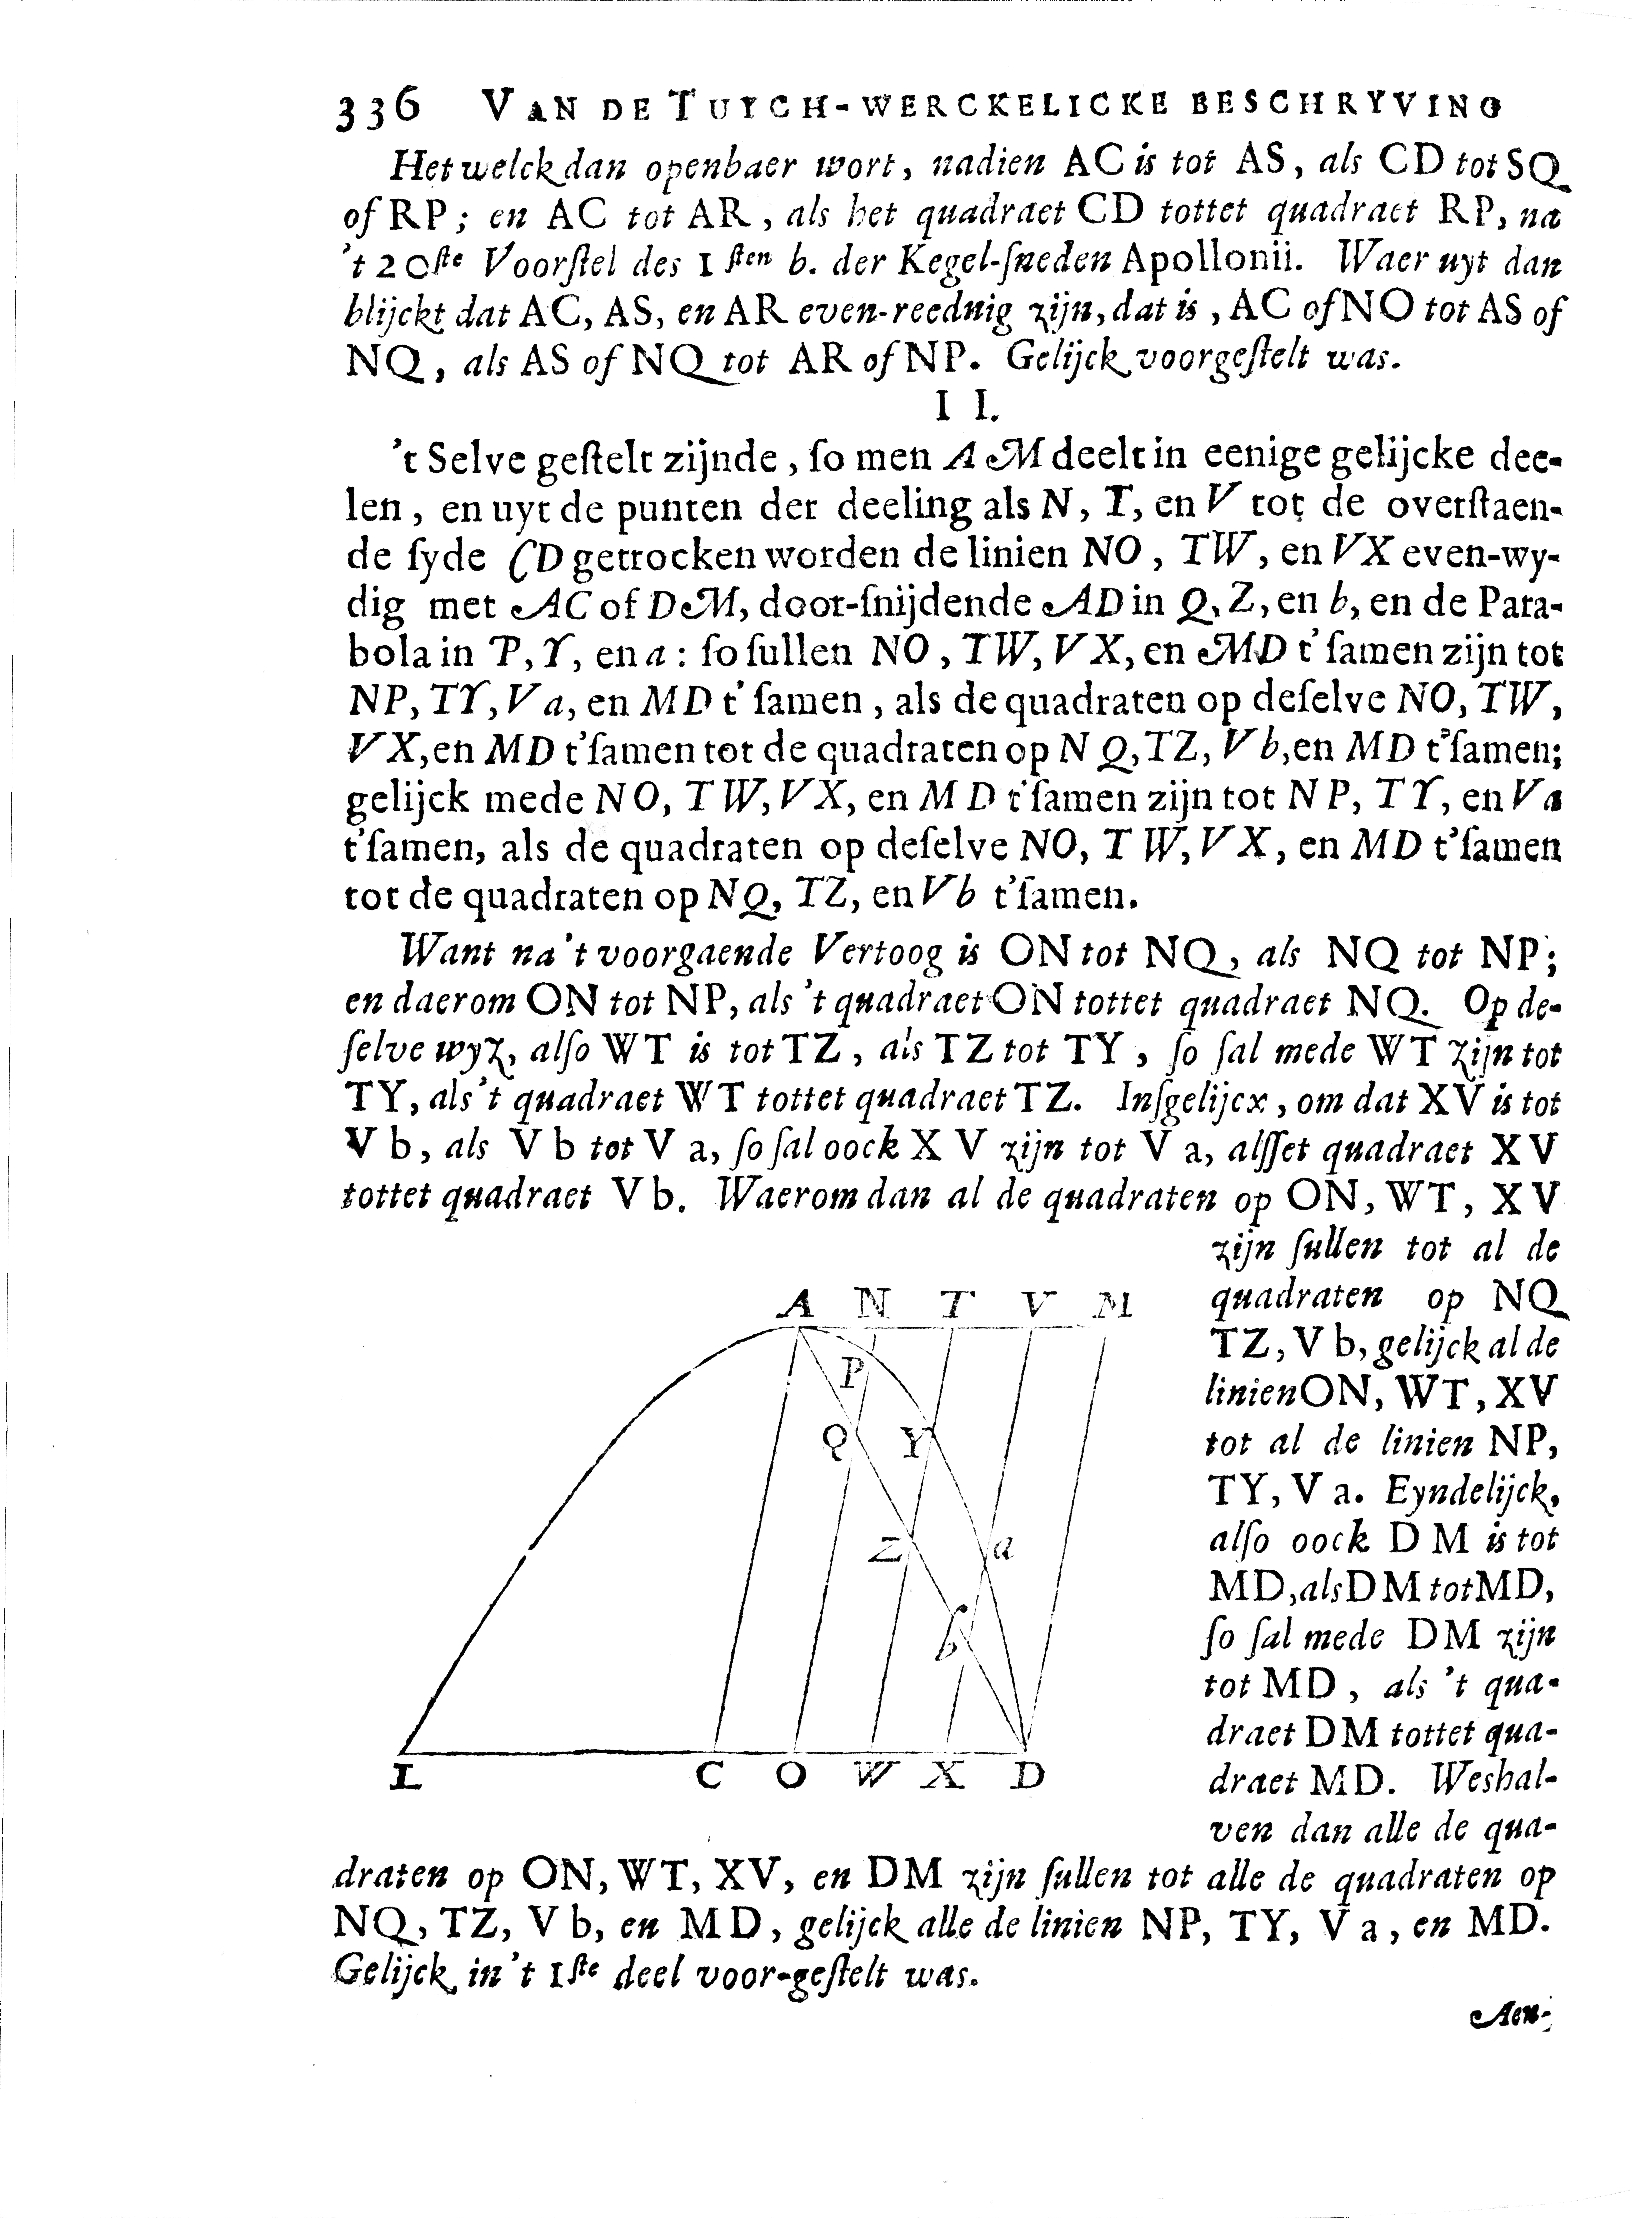 336 VAN DE TUYCH-WERCKELICKE BESCHRYVING
Het welck dan openbaer wort, nadien AC is tot AS, als CD tot SQ
of RP; en AC tot AR, als het quadraet CD tottet quadraet RP, na
't 20ſte Voorſtel des 1ſten b. der Kegel-ſneden Apollonii. Waer uyt dan
blijckt dat AC, AS, en AR even-reednig zijn, dat is, AC of NO tot AS of
NQ, als AS of NQ tot AR of NP. Gelijck voorgeſtelt was.
I I.
't Selve geſtelt zijnde, ſo men AM deelt in eenige gelijcke dee-
len, en uyt de punten der deeling als N, T, en V tot de overſtaen-
de ſyde CD getrocken worden de linien NO, TW, en VX even-wy-
dig met AC of DM, door-ſnijdende AD in Q, Z, en b, en de Para-
bola in P, Y, en a: ſo ſullen NO, TW, VX, en MD t'ſamen zijn tot
NP, TY, Va, en MD t'ſamen, als de quadraten op deſelve NO, TW,
VX, en MD t'ſamen tot de quadraten op NQ, TZ, Vb, en MD t'ſamen;
gelijck mede NO, TW, VX, en MD t'ſamen zijn tot NP, TY, en Va
t'ſamen, als de quadraten op deſelve NO, TW, VX, en MD t'ſamen
tot de quadraten op NQ, TZ, en Vb t'ſamen.
Want na 't voorgaende Vertoog is ON tot NQ, als NQ tot NP;
en daerom ON tot NP, als 't quadraet ON tottet quadraet NQ. Op de-
ſelve wyz, alſo WT is tot TZ, als TZ tot TY, ſo ſal mede WT zijn tot
TY, als 't quadraet WT tottet quadraet TZ. Inſgelijcx, om dat XV is tot
V b, als V b tot V a, ſo ſal oock X V zijn tot V a, alſſet quadraet X V
tottet quadraet V b. Waerom dan al de quadraten op ON, WT, X V
zijn ſullen tot al de
quadraten op NQ
TZ, V b, gelijck al de
linien ON, WT, XV
tot al de linien NP,
TY, V a. Eyndelijck,
alſo oock D M is tot
MD, als DM tot MD,
ſo ſal mede DM zijn
tot MD, als 't qua-
draet DM tottet qua-
draet MD. Weshal-
ven dan alle de qua-
A N T V M
P
Q Y
Z a
b
L C O W X D
draten op ON, WT, XV, en DM zijn ſullen tot alle de quadraten op
NQ, TZ, V b, en MD, gelijck alle de linien NP, TY, V a, en MD.
Gelijck in 't 1ſte deel voor-geſtelt was.
Aen-